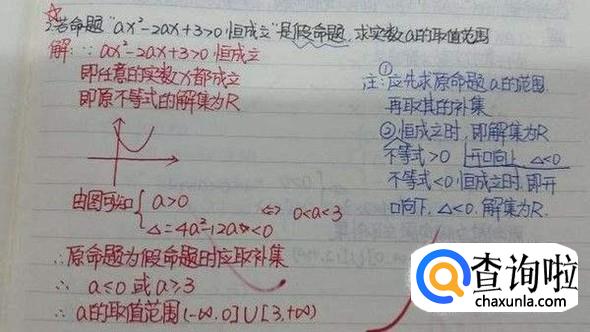 若命题"ax²-2ax+3>0恒成立"是假命题,求实数a的取值范围
解:∵ ax²-2ax+3>0恒成立
即任意的实数x都成立
即原不等式的解集为R
由图可知{ a>0
Δ=4a²-12a<0 ⇔ 0<a<3
∴原命题为假命题时应取补集
∴ a≤0 或 a≥3
∴ a的取值范围(-∞,0]∪[3,+∞)
注:①应先求原命题a的范围
再取其的补集
②恒成立时,即解集为R
不等式>0 开口向上 Δ<0
不等式<0恒成立时,即开
口向下,Δ<0.解集为R.
查询啦
chaxunla.com